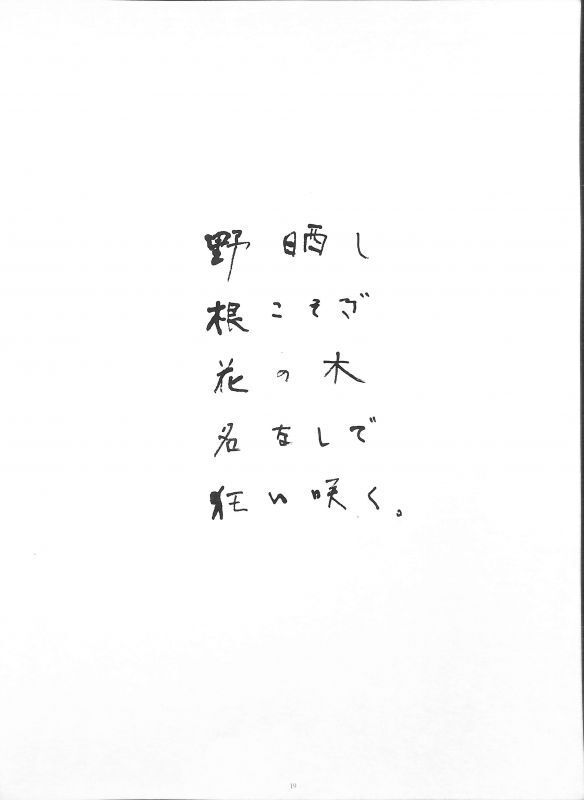 野晒し
根こそぎ
花の木
名をしで
狂い咲く。
19